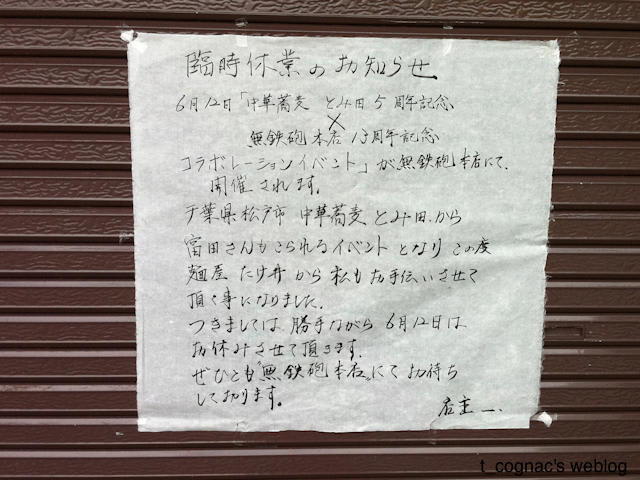 臨時休業のお知らせ
6月12日「中華蕎麦 とみ田 5周年記念
×
無鉄砲本店 13周年記念
コラボレーションイベント」が無鉄砲本店にて、
開催されます。
千葉県松戸市 中華蕎麦 とみ田 から
富田さんもこられるイベントとなり この度
麺屋 たけ井 から 私も お手伝いさせて
頂く事になりました。
つきましては 勝手ながら 6月12日は
お休みさせて頂きます。
ぜひとも"無鉄砲本店"にて お待ち
しております。
店主
t_cognac's weblog